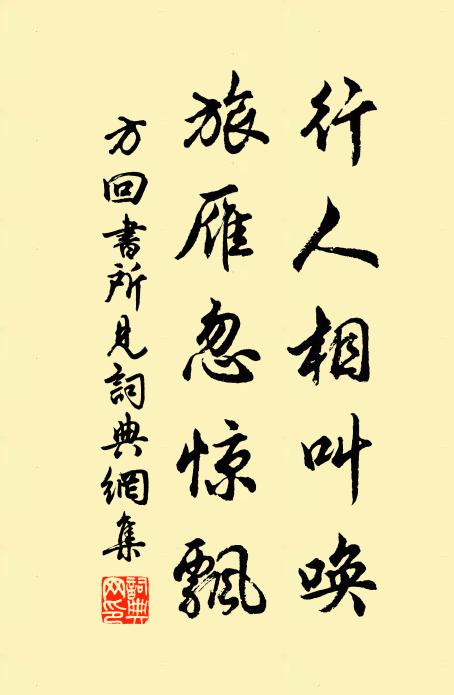 行人相叫唤
旅雁忽惊飘
方回書所見詞典網集
詞典网印